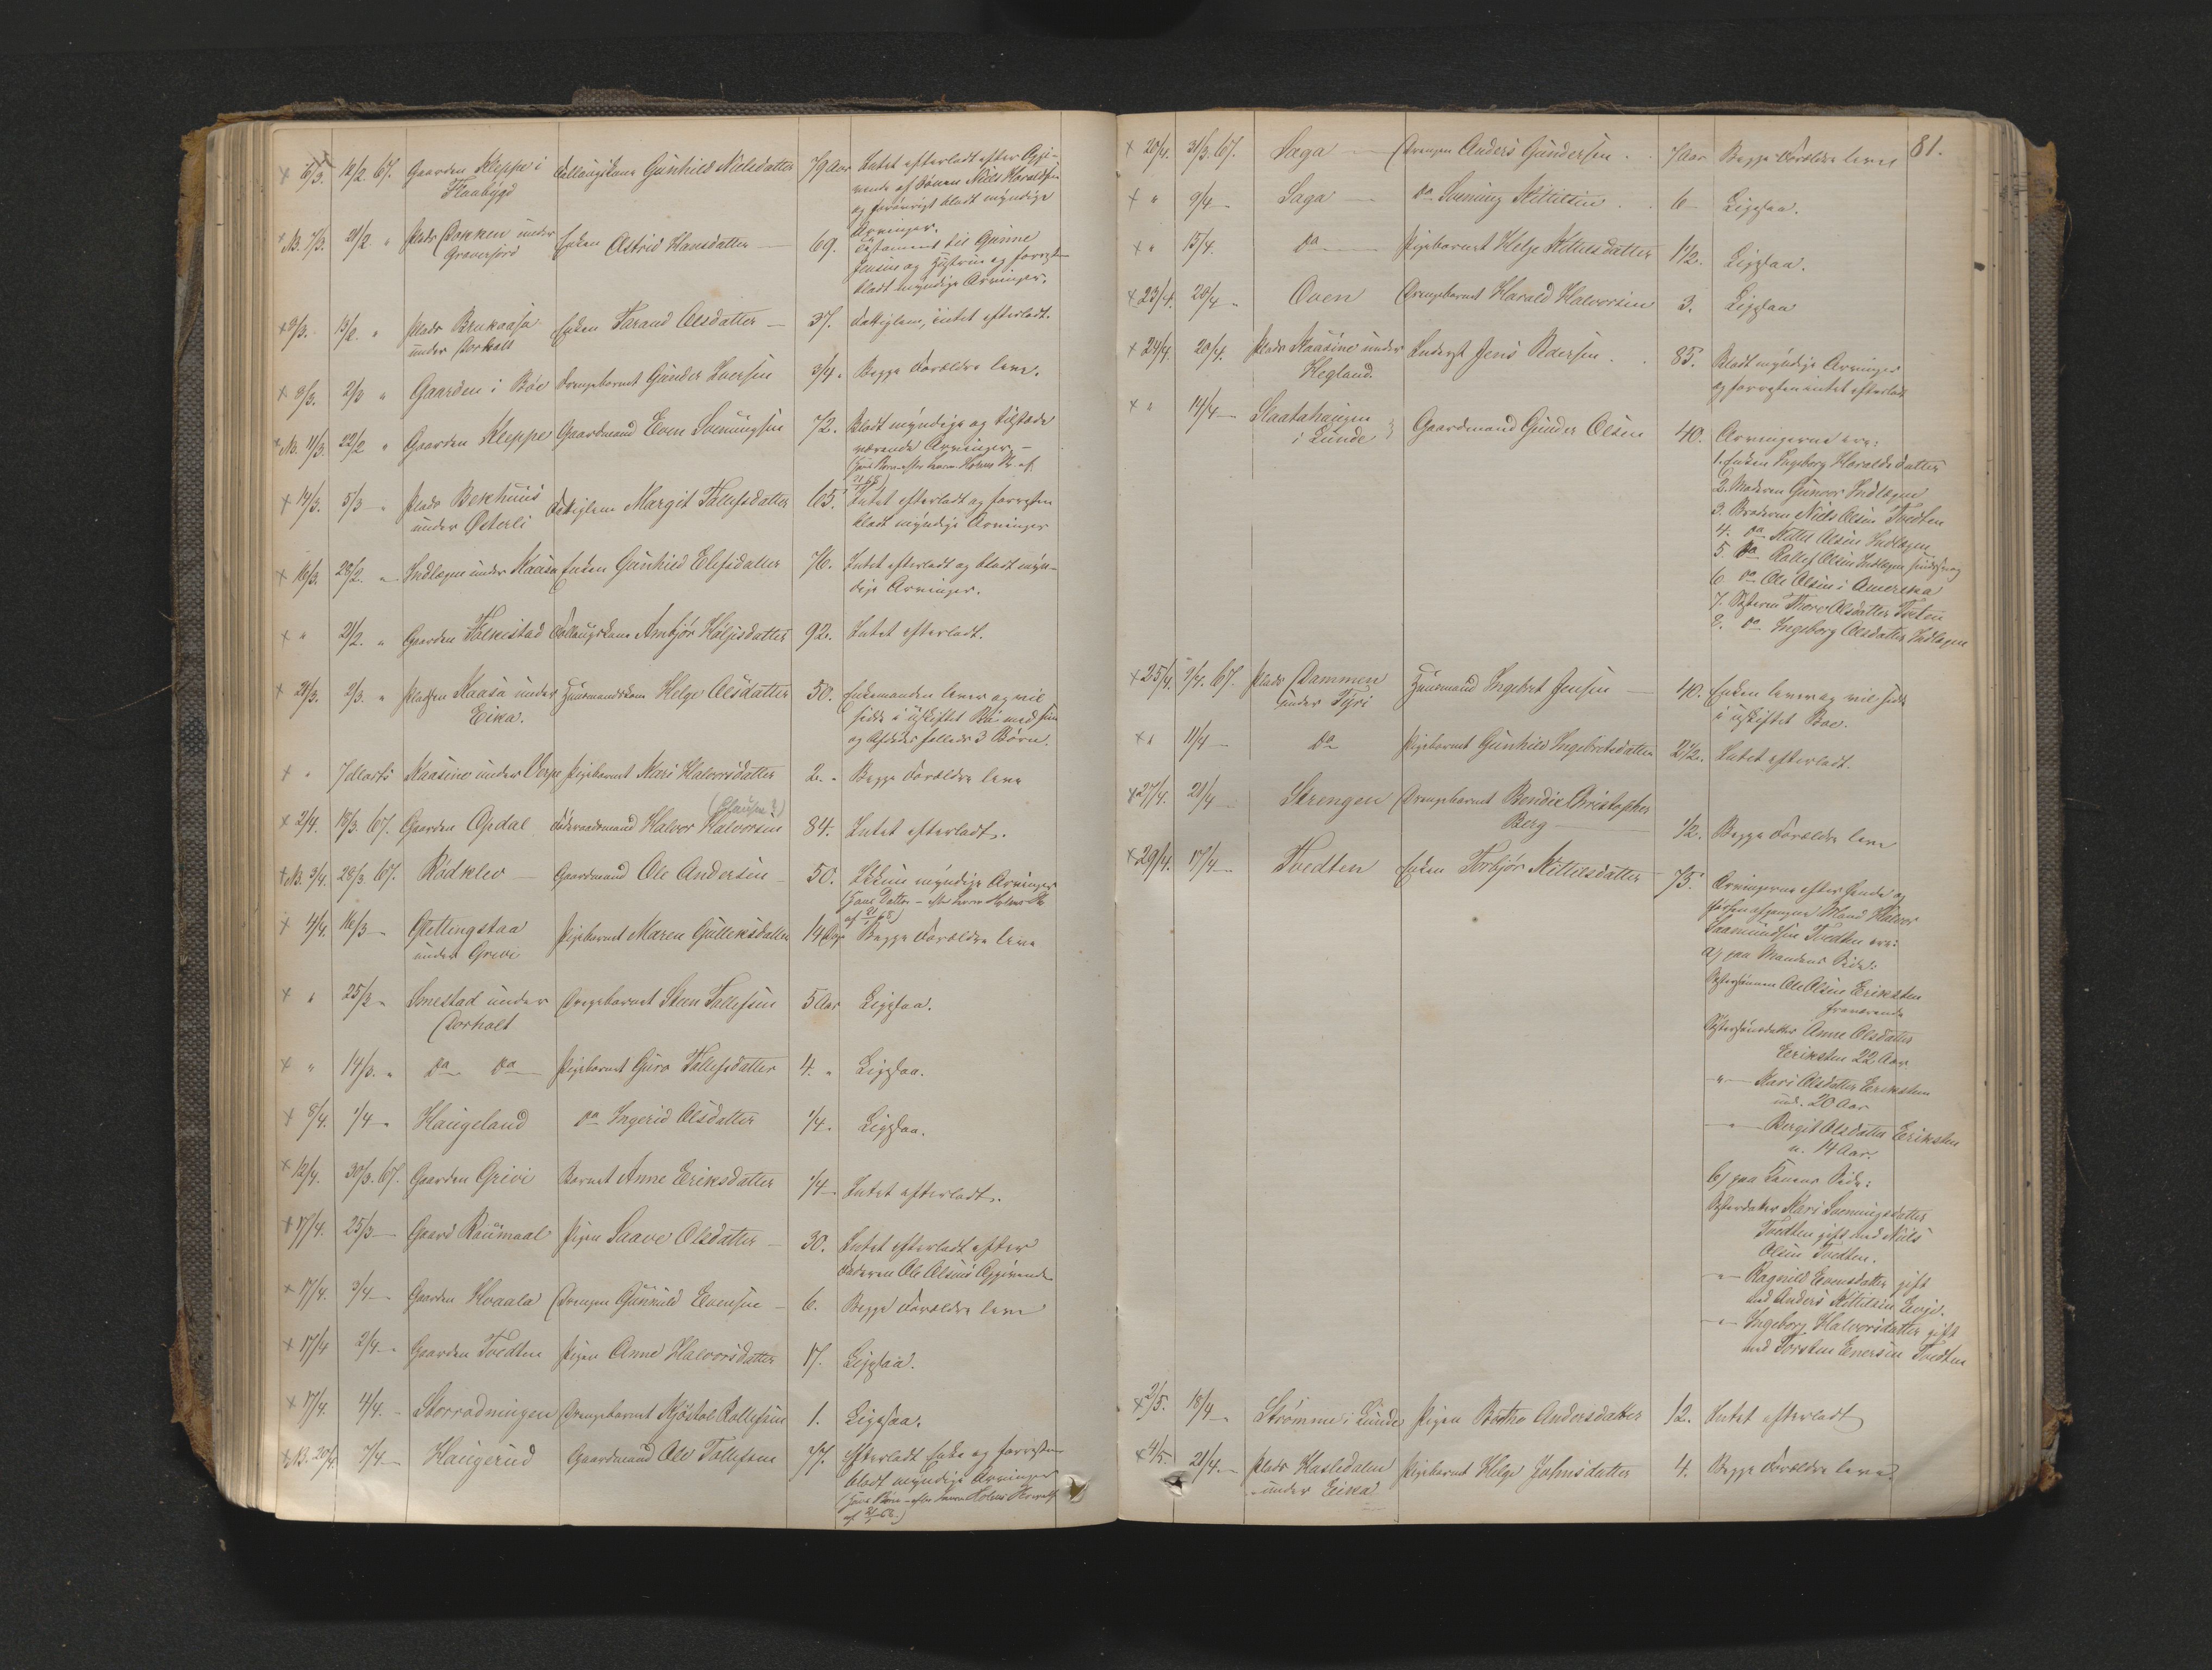 x 6/3. 12/2. 67. Gaarden Kleppe i Follaugskone Gunhild Nielsdatter 79 Aar Intet efterladt efter Opgi-
Flaabygd
vende af Sönnen Niels Haraldsen
og forövrigt blodt myndige
Arvinger.
x NB. 7/3. 21/2 " Plads Dokken under Enken Astrid Hansdatter — 69. Testament til Gunne
Graverfjord
Jensine og Hustrue og forresten
blodt myndige Arvinger.
x 9/3. 13/2. " Plads Brukaasa Enken Taraud Olsdatter — 37. Fattiglem, intet efterladt.
under Dorholt
x 9/3. 2/3 " Gaarden i Böe Drengebarnet Gunder Iversen 3/4 " Begge Forældre leve.
x NB. 11/3. 22/2 " Gaarden Kleppe Gaardmand Even Sveningsen 72. Blodt myndige og tilstede
værende Arvinger. —
x 14/3. 5/3 " Plads Bekhuus Fattiglem Margit Tollefsdatter 65. Intet efterladt og forresten
under Østerli
blodt myndige Arvinger
x 16/3. 28/2. " Indlægne under Kaasa Enken Gunhild Elefsdatter 76. Intet efterladt og blodt myn-
dige Arvinger.
x " 21/2. " Gaarden Falkestad Follaugskone Anbjör Höljesdatter 92. Intet efterladt.
x 21/3. 2/3. " Pladsen Kaasa under Huusmandskone Helge Olsdatter 50. Enkemanden lever og vil
Eika.
sidde i uskiftet Bo med sine
og Afdödes fælleds 3 Börn.
x " 7 Marts Kaasene under Verpe Pigebarnet Kari Halvorsdatter 2. " Begge Forældre leve
x 2/4. 18/3. 67. Gaarden Opdal Föderaadsmand Halvor Halvorsen 84. Intet efterladt.
x NB. 3/4. 28/3. 67. Rödklev — Gaardmand Ole Andersen 50. Ilene myndige Arvinger
x 4/4. 16/3 " Gjettingstaa Pigebarnet Maren Gulleksdatter 14 Dage Begge Forældre leve
under Grivi
x " 25/2 " Smestad under Drengebarnet Steen Tollefsen 5 Aar Ligesaa.
Dorholt
x " 14/3. " do do Pigebarnet Guro Tollefsdatter 4. " Ligesaa.
x 8/4. 1/4 " Haugeland do Ingerid Olsdatter 1/4. Ligesaa.
x 12/4. 30/3. 67. Gaarden Grivi Barnet Anne Eriksdatter 1/4 — Intet efterladt.
x 17/4. 25/3 — Gaard Raumaal Pigen Saave Olsdatter — 30. Intet efterladt efter
Faderen Ole Olsens Opgivende
x 17/4. 3/4 — Gaarden Hvaala Drengen Gunnuld Evensen — 6. Begge Forældre leve
x 17/4 2/4 — Gaarden Tvedten Pigen Anne Halvorsdatter 17. Ligesaa.
x 17/4. 4/4. — Storrodningen Drengebarnet Kjöstol Rollefsen 1. Ligesaa.
x NB. 20/4. 7/4 — Haugerud Gaardmand Ole Tollefsen 77. Efterladt Enke og forresten
blodt myndige Arvinger
81.
x 20/4. 31/3. 67. Saga — Drengen Anders Gundersen . 7 Aar Begge Forældre leve
x " 9/4 — Saga — do Svening Kittilsen . 6 — Ligesaa.
x " 15/4. do — Pigebarnet Helge Kittilsdatter 1 1/2. Ligesaa.
x 23/4. 20/4 " Oven Drengebarnet Harald Halvorsen 3. Ligesaa
x 24/4. 20/4. Plads Kaasene under Enkegt Jens Pedersen . 85. Blodt myndige Arvinger
Hegland.
og forresten intet efterladt
x " 14/4 — Skaatahaugen Gaardmand Gunder Olsen 40. Arvingerne ere:
i Lunde
1. Enken Ingeborg Haraldsdatter
2. Moderen Gunvor Indlægen
3. Broderen Niels Olsen Tvedten
4. do Kittil Olsen Indlægen
5. do Rollef Olsen Indlægen
6. do Ole Olsen i Amerika
7. Systeren Thore Olsdatter
8. do Ingeborg Olsdatter Indlægen
x 25/4. 9/4. 67. Plads Dammen Huusmand Ingebret Jensen — 40. Enken lever og vil sidde
under Tyri
i uskiftet Boe.
x " 11/4 — do Pigebarnet Gunhild Ingebretsdatter 2 1/2. Intet efterladt.
x 27/4. 21/4 Strengen Drengebarnet Bendix Christopher
Berg — 1/2. Begge Forældre leve
x 29/4. 17/4 — Tvedten Enken Torbjör Kittilsdatter 75. Arvingerne efter hende og
forhen afgangne Mand Halvor
Saamundsen Tvedten ere:
a) paa Mandens Side:
Systersönnen Ole Olsen Eriksten
fraværende
Systersönsdatter Anne Olsdatter
Eriksten 22 Aar
— " — Kari Olsdatter Eriksten
und. 20 Aar
— " — Bergit Olsdatter Eriksten
u. 14 Aar.
b) paa Konens Side:
Systerdatter Kari Sveningsdatter
Tvedten gift med Niels
Olsen Tvedten.
— " — Ragnild Evensdatter gift
med Anders Kittilsen Eerje.
— " — Ingeborg Halvorsdatter gift
med Torsten Enersen Tvedten
x 2/5. 18/4 " Strömme i Lunde Pigen Börthe Andersdatter 12. Intet efterladt
x 4/5. 21/4. — Plads Hasledalen Pigebarnet Helge Johnsdatter 4. Begge Forældre leve.
under Eika